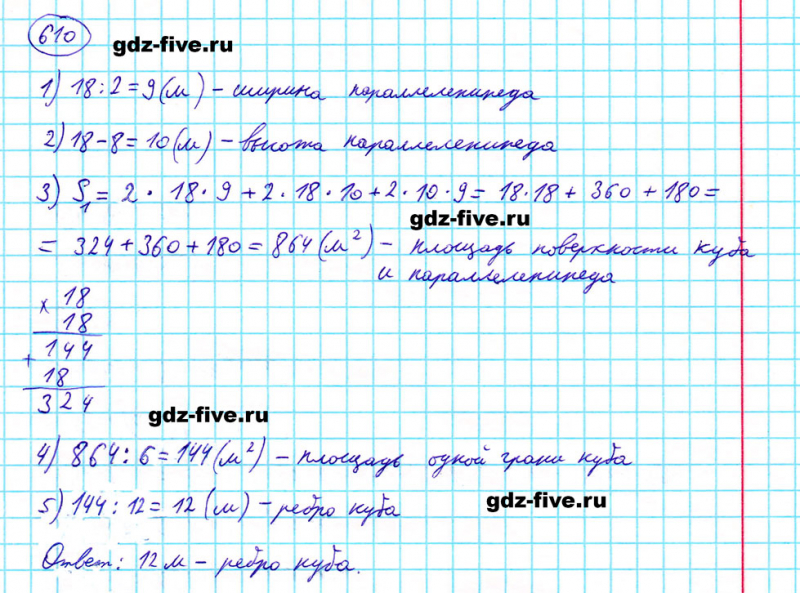 610
gdz-five.ru
1) 18 : 2 = 9 (м) - ширина параллелепипеда
2) 18 - 8 = 10 (м) - высота параллелепипеда
3) S₁ = 2 · 18 · 9 + 2 · 18 · 10 + 2 · 10 · 9 = 18 · 18 + 360 + 180 =
gdz-five.ru
= 324 + 360 + 180 = 864 (м²) - площадь поверхности куба
и параллелепипеда
× 18
18
+ 144
18
324
gdz-five.ru
4) 864 : 6 = 144 (м²) - площадь одной грани куба
5) 144 : 12 = 12 (м) - ребро куба
gdz-five.ru
Ответ: 12 м - ребро куба.